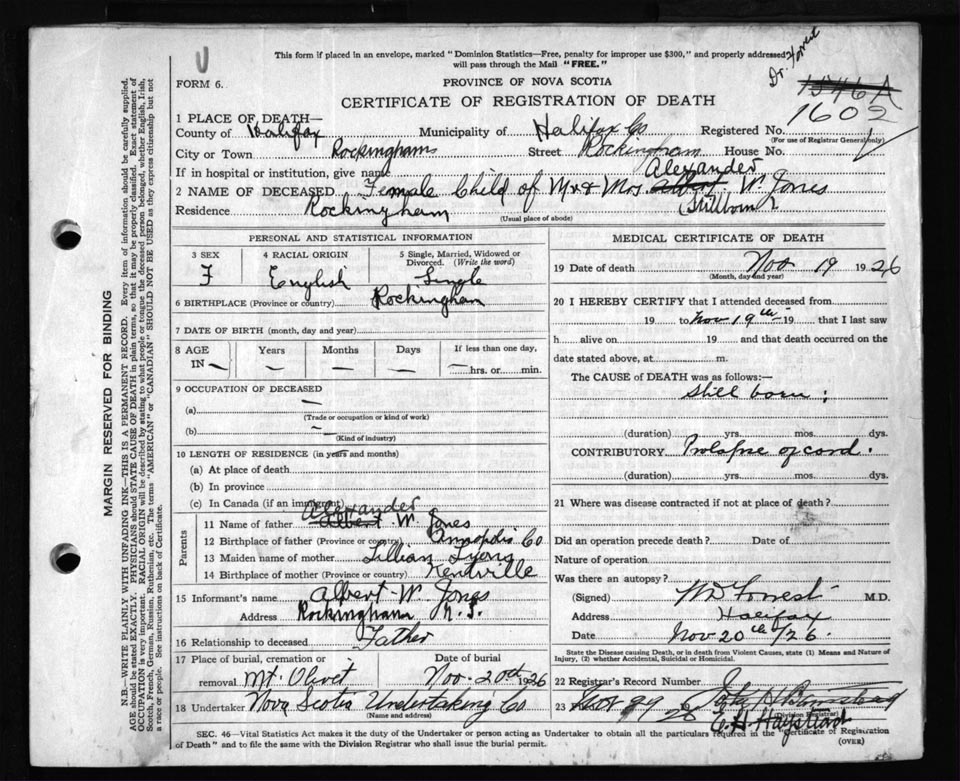 This form if placed in an envelope, marked "Dominion Statistics—Free, penalty for improper use $300," and properly addressed
will pass through the Mail "FREE."
Dr. Forrest
U
FORM 6.
PROVINCE OF NOVA SCOTIA
1546A
CERTIFICATE OF REGISTRATION OF DEATH
1602
1 PLACE OF DEATH—
County of Halifax Municipality of Halifax Co Registered No.
(For use of Registrar General only)
City or Town Rockingham Street Rockingham House No.
If in hospital or institution, give name
Alexander
2 NAME OF DECEASED Female Child of Mr & Mrs Albert W. Jones
Residence Rockingham Stillborn
(Usual place of abode)
PERSONAL AND STATISTICAL INFORMATION
3 SEX 4 RACIAL ORIGIN 5 Single, Married, Widowed or Divorced. (Write the word)
F English Single
6 BIRTHPLACE (Province or country) Rockingham
7 DATE OF BIRTH (month, day and year)
8 AGE Years Months Days If less than one day,
IN — — — — — hrs. or min.
9 OCCUPATION OF DECEASED
(a) —
(Trade or occupation or kind of work)
(b) —
(Kind of industry)
10 LENGTH OF RESIDENCE (in years and months)
(a) At place of death
(b) In province
(c) In Canada (if an immigrant)
Parents
Alexander
11 Name of father Albert W. Jones
12 Birthplace of father (Province or country) Annapolis Co
13 Maiden name of mother Lillian Lyons
14 Birthplace of mother (Province or country) Kentville
15 Informant's name Albert W Jones
Address Rockingham N.S.
16 Relationship to deceased Father
17 Place of burial, cremation or removal Mt. Olivet
Date of burial Nov. 20th 1926
18 Undertaker Nova Scotia Undertaking Co
(Name and address)
MEDICAL CERTIFICATE OF DEATH
19 Date of death Nov 19 1926
(Month, day and year)
20 I HEREBY CERTIFY that I attended deceased from
19 to Nov 19th 19 that I last saw
h alive on 19 and that death occurred on the
date stated above, at m.
The CAUSE of DEATH was as follows:—
Still born:
(duration) yrs. mos. dys.
CONTRIBUTORY Prolapse of cord.
(duration) yrs. mos. dys.
21 Where was disease contracted if not at place of death?
Did an operation precede death? Date of
Nature of operation
Was there an autopsy?
(Signed) WD Forrest M.D.
Address Halifax
Date Nov 20th/26.
State the Disease causing Death, or in death from Violent Causes, state (1) Means and Nature of
Injury, (2) whether Accidental, Suicidal or Homicidal.
22 Registrar's Record Number
23
Division Registrar
SEC. 46—Vital Statistics Act makes it the duty of the Undertaker or person acting as Undertaker to obtain all the particulars required in the "Certificate of Registration
of Death" and to file the same with the Division Registrar who shall issue the burial permit.
(OVER)
MARGIN RESERVED FOR BINDING
N.B.—WRITE PLAINLY WITH UNFADING INK—THIS IS A PERMANENT RECORD. Every item of information should be carefully supplied.
AGE should be stated EXACTLY. PHYSICIANS should STATE CAUSE OF DEATH in plain terms, so that it may be properly classified. Exact statement of
OCCUPATION is very important. RACIAL ORIGIN will be described by stating to what people or tongue the deceased person belonged, whether English, Irish,
Scotch, French, German, Russian, Ruthenian, etc. The terms "AMERICAN" or "CANADIAN" SHOULD NOT BE USED as they express citizenship but not
a race or people. See instructions on back of Certificate.